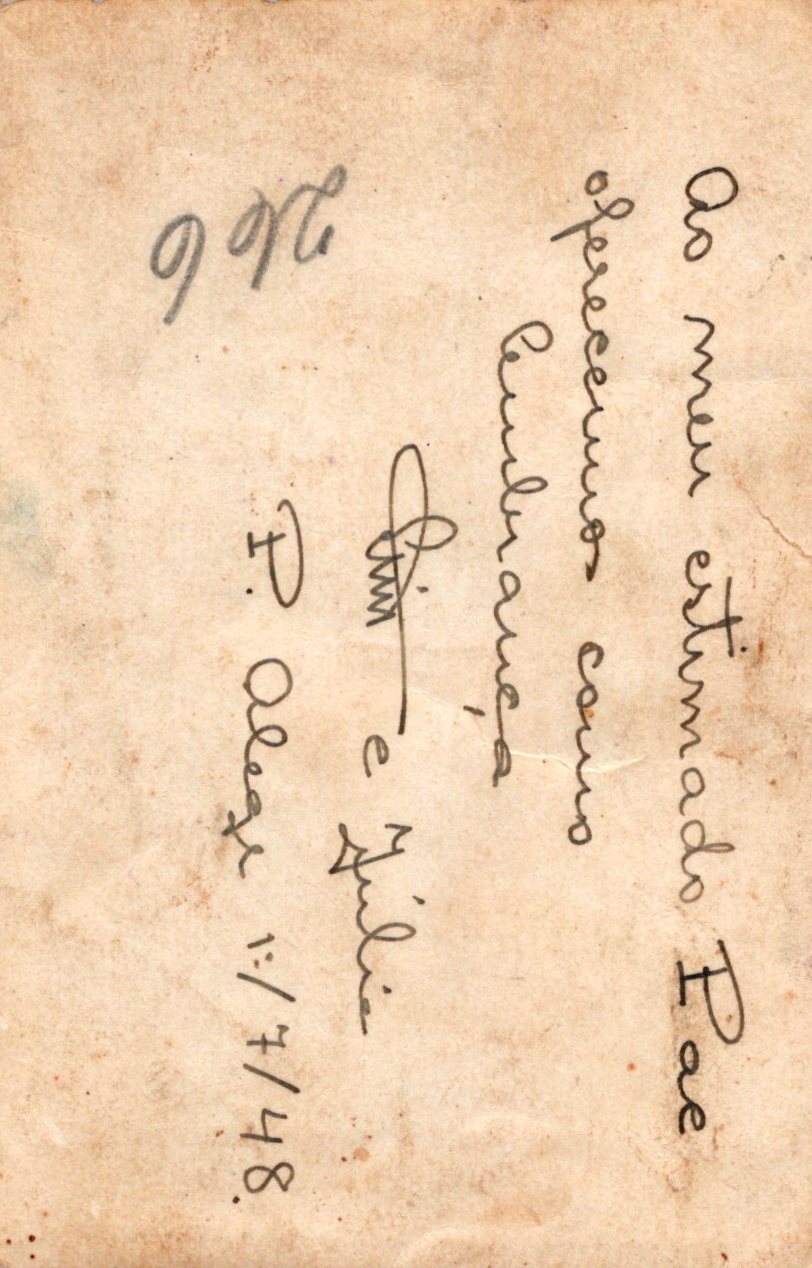 Ao meu estimado Pae
oferecemos como
lembrança
e Júlia
P. Alegre 1º/7/48.
266